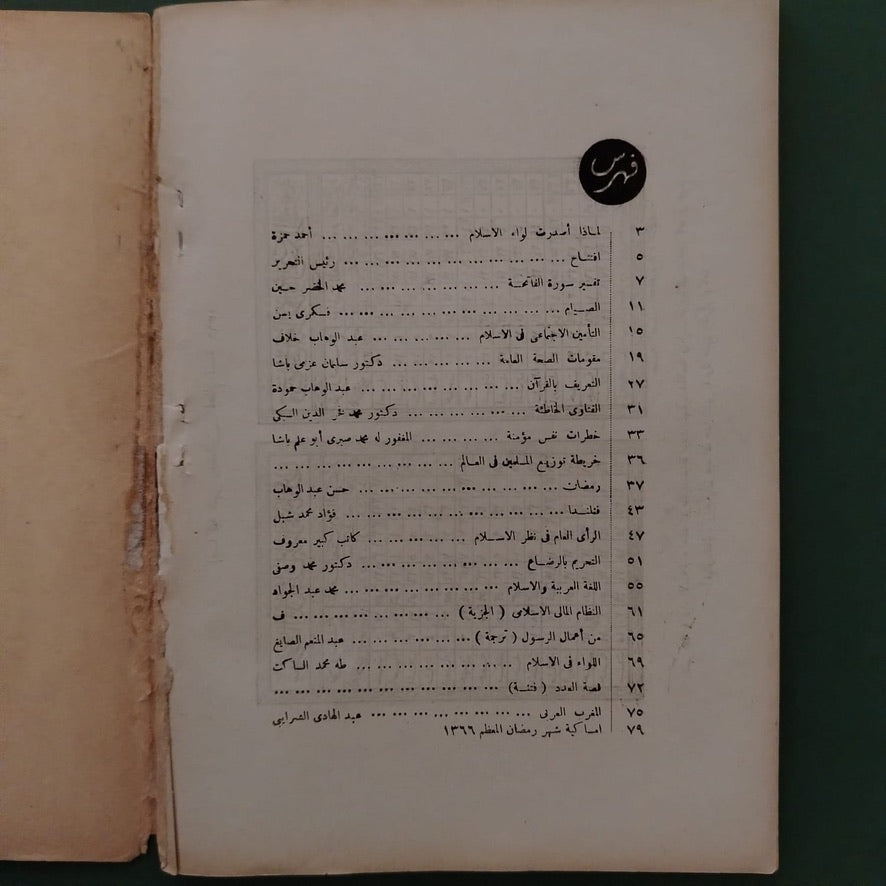 فهرس
٣ لماذا أصدرت لواء الاسلام ... ... ... ... ... ... ... أحمد حمزة
٥ افتتاح ... ... ... ... ... ... ... ... ... ... ... رئيس التحرير
٧ تفسير سورة الفاتحة ... ... ... ... ... ... ... محمد الخضر حسين
١١ الصيام ... ... ... ... ... ... ... ... ... ... فكرى يسن
١٥ التأمين الاجتماعى فى الاسلام ... ... ... ... ... عبد الوهاب خلاف
١٩ مقومات الصحة العامة ... ... ... ... ... دكتور سليمان عزمى باشا
٢٧ التعريف بالقرآن ... ... ... ... ... ... ... ... عبد الوهاب حمودة
٣١ الفتاوى الخاطئة ... ... ... ... ... ... دكتور محمد فخر الدين السبكى
٣٣ خطرات نفس مؤمنة ... ... ... ... المغفور له محمد صبرى أبو علم باشا
٣٦ خريطة توزيع المسلمين فى العالم ... ... ... ... ... ... ... ... ...
٣٧ رمضان ... ... ... ... ... ... ... ... ... ... حسن عبد الوهاب
٤٣ فنلندا ... ... ... ... ... ... ... ... ... ... ... فؤاد محمد شبل
٤٧ الرأى العام فى نظر الاسلام ... ... ... ... ... كاتب كبير معروف
٥١ التحريم بالرضاع ... ... ... ... ... ... ... ... دكتور محمد وصفى
٥٥ اللغة العربية والاسلام ... ... ... ... ... ... ... ... محمد عبد الجواد
٦١ النظام المالى الاسلامى ( الجزية ) ... ... ... ... ... ... ... ... ف
٦٥ من أعمال الرسول ( ترجمة ) ... ... ... ... ... ... عبد المنعم الصايغ
٦٩ اللواء فى الاسلام ... ... ... ... ... ... ... ... طه محمد الساكت
٧٢ قصة العدد ( فتنة ) ... ... ... ... ... ... ... ... ... ... ...
٧٥ المغرب العربى ... ... ... ... ... ... ... ... عبد الهادى الشرايبى
٧٩ امساكية شهر رمضان المعظم ١٣٦٦